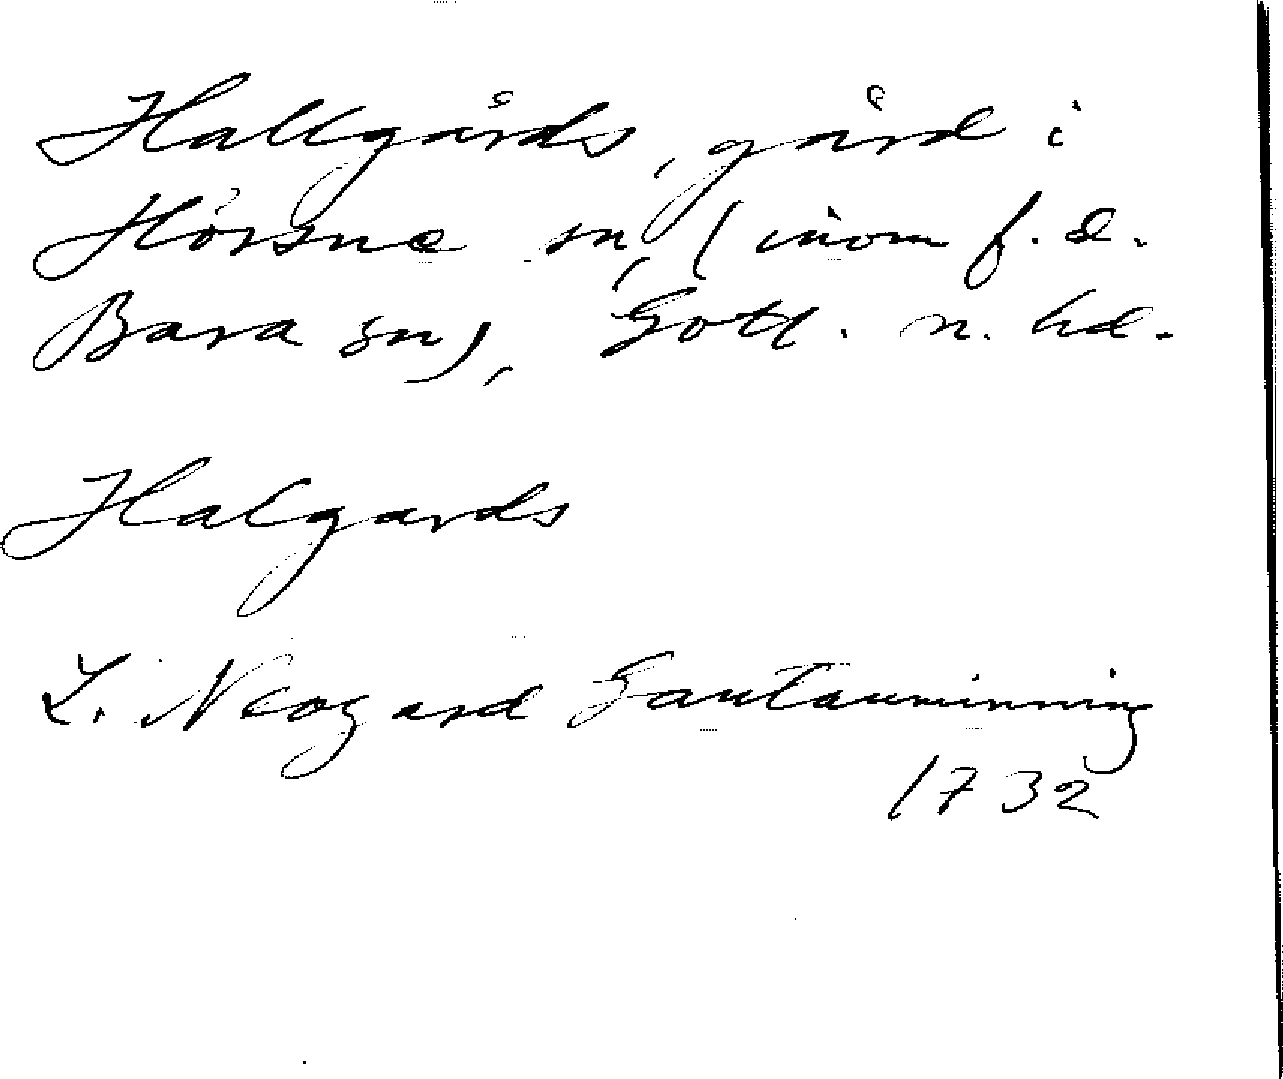 Hallgårds, gård i
Hörsne sn, (inom f.d.
Bara sn), Gotl. n. hd.
Halgards
L. Neogard Gautauminning
1732